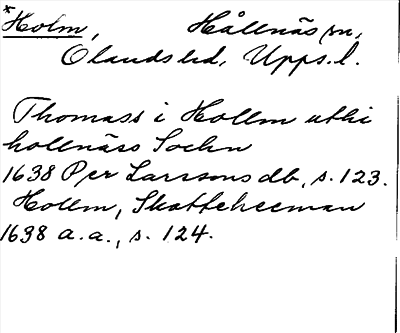 *Holm, Hållnäs sn,
Olands hd, Upps. l.
Thomass i Hollm uthi
hollnäss Sochn
1638 Per Larssons db, s. 123.
Hollm, Skatteheeman
1638 a. a., s. 124.